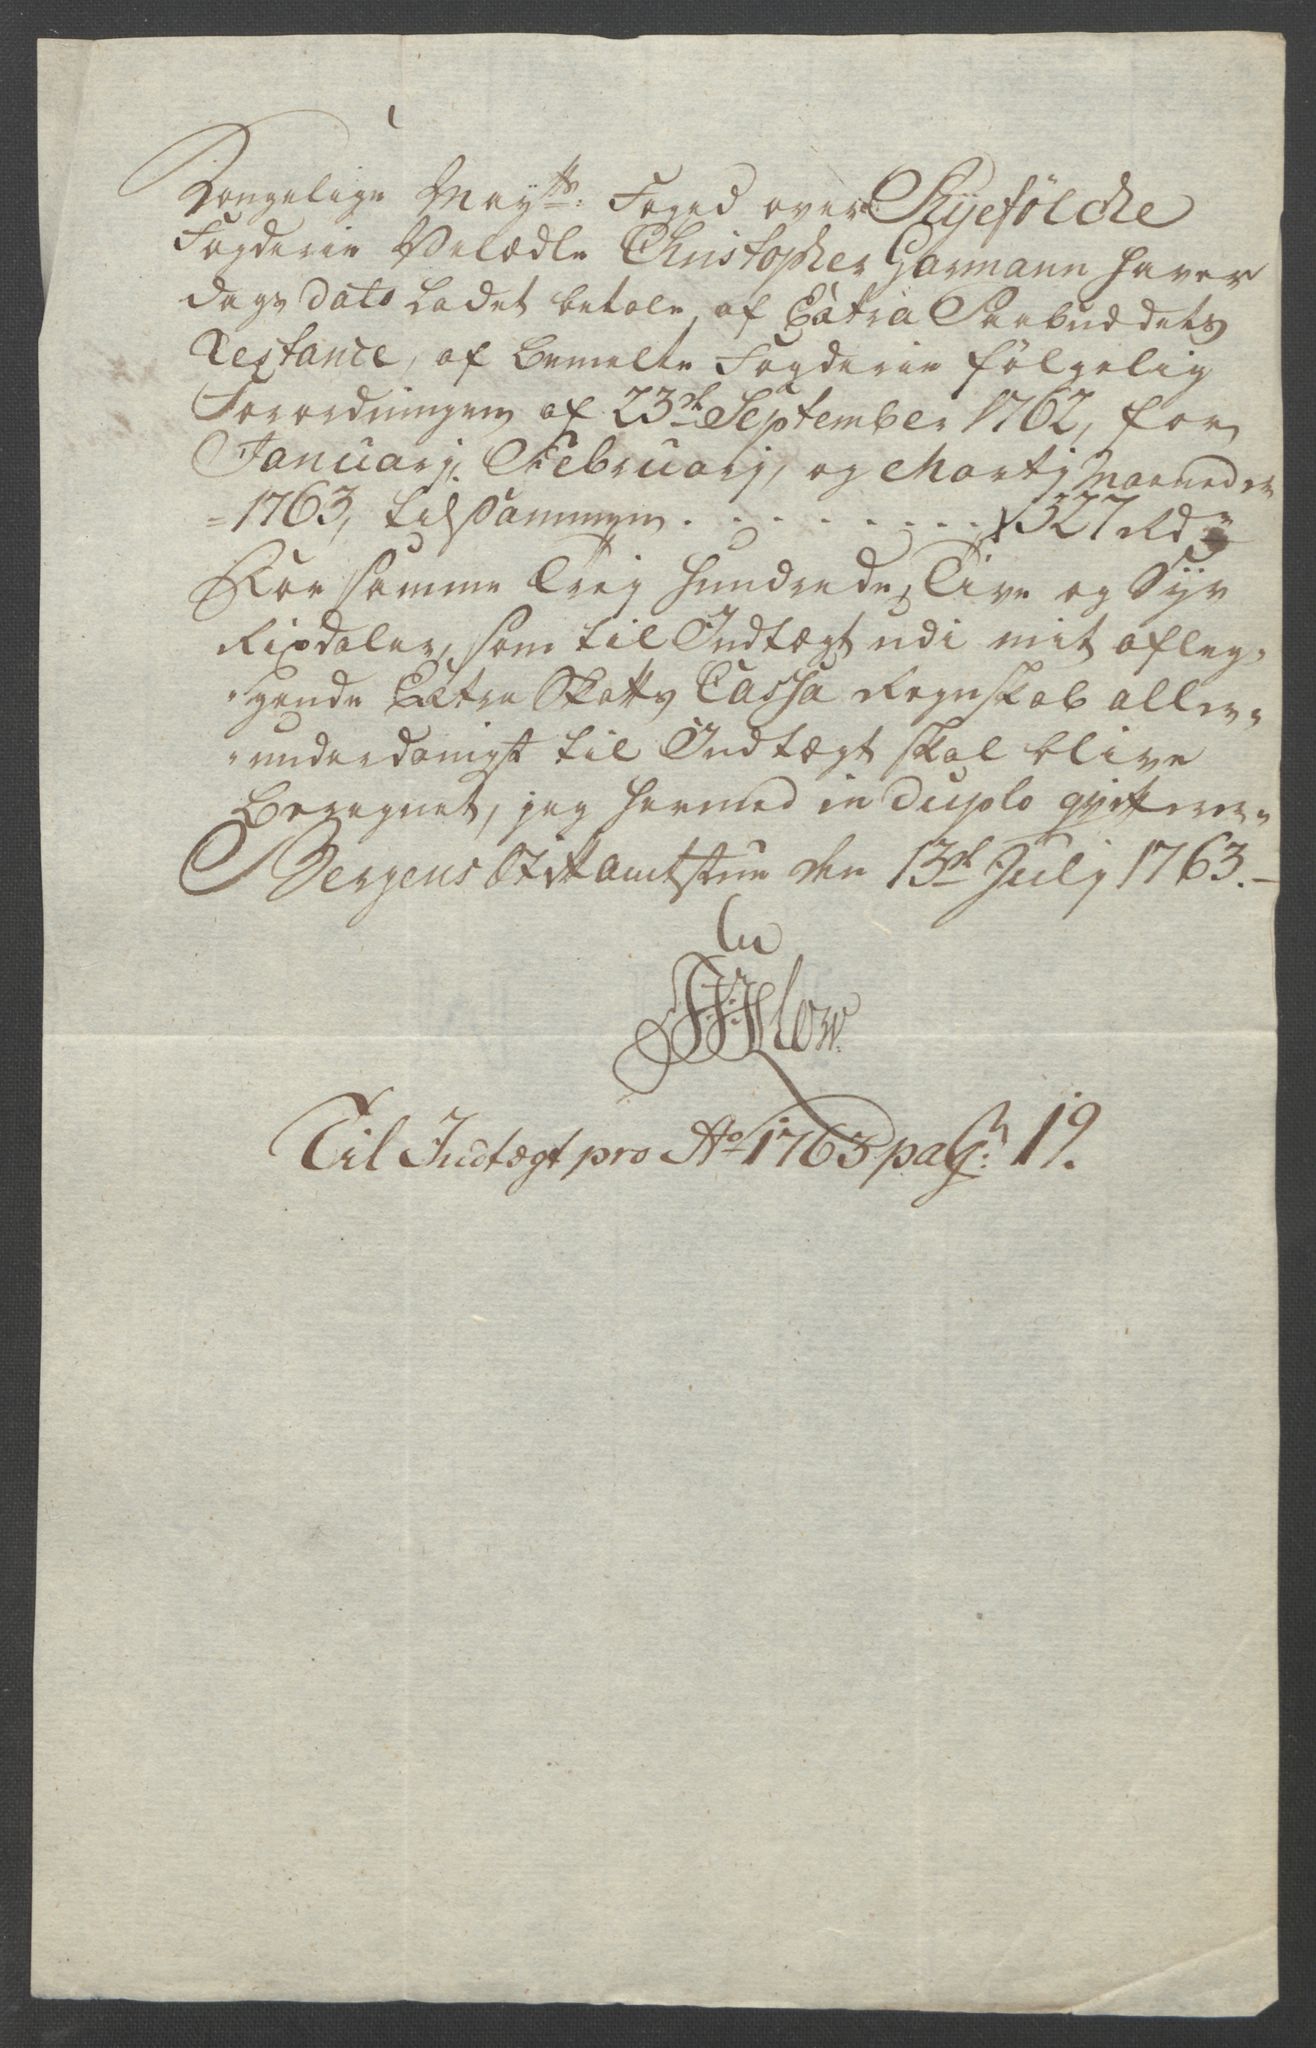 Kongelige May:tts Foged over Ryefölche
Fogderie Velædle Christopher Garmann haver
dags dato ladet betale, af Extra Paabuddets
Restance, af bemelte Fogderie følgelig
Forordningen af 23de September 1762, for
Januarj, Februarj, og Martj Maaneder
1763, tilsammen . . . . . . . . . 327 Rd
For samme Trej Hundrede, Tive og Syv
Rixdaler, som til Indtægt udi mit afleg-
-gende Extra Skatts Cassa Regnskab aller-
-underdanigst til Indtægt skal blive
Beregnet, jeg hermed in duplo qvitterer-
Bergens Stiftamtstue den 13de Julj 1763.
Til Indtægt pro Ao 1763 pag: 19.